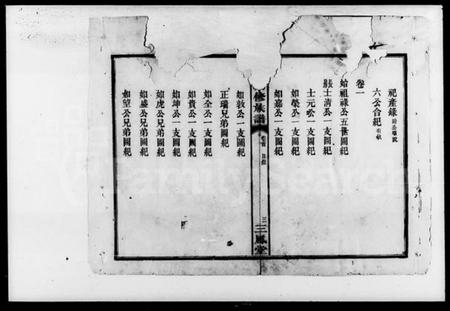 祀產錄
六公合紀
卷一
始祖祿公五世圖紀
士元公一支圖紀
如榮公一支圖紀
如嘉公一支圖紀
族譜
三
三鳳堂
如敦公一支圖紀
正瑞兄弟圖紀
如全公一支圖紀
如貴公一支圖紀
如坤公一支圖紀
如虎公兄弟圖紀
如盛公兄弟圖紀
如望公兄弟圖紀
FamilySearch